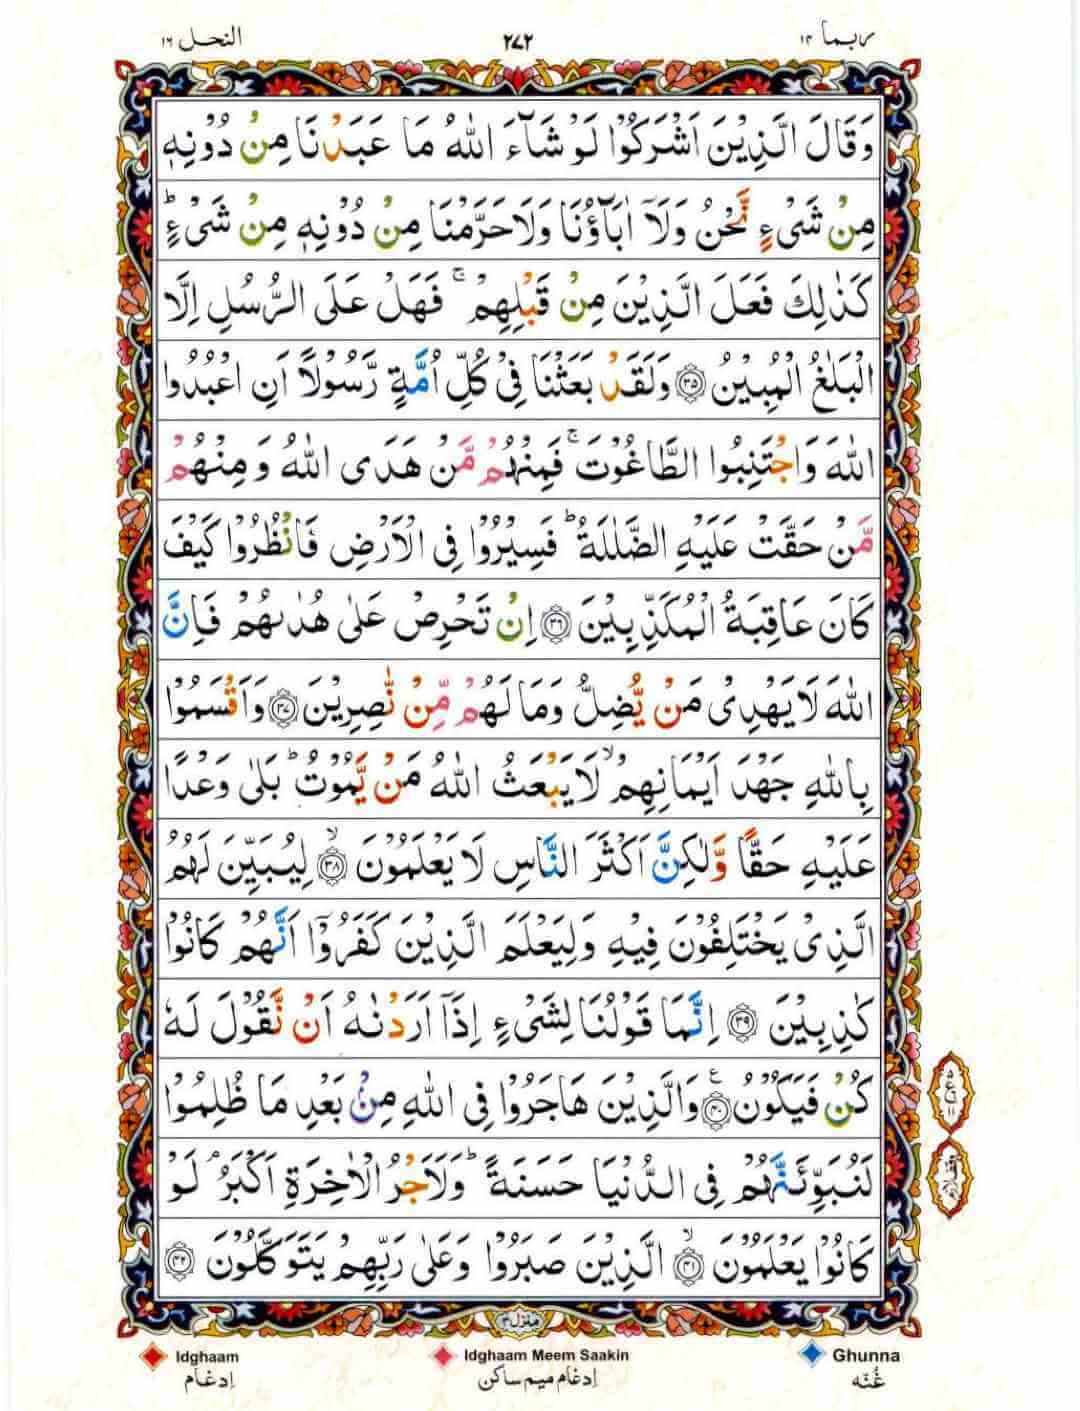 ربما ۱۴
۲۷۲
النحل ۱۶
وَقَالَ الَّذِيْنَ اَشْرَكُوْا لَوْ شَآءَ اللّٰهُ مَا عَبَدْنَا مِنْ دُوْنِهٖ
مِنْ شَىْءٍ نَّحْنُ وَلَاۤ اٰبَآؤُنَا وَلَا حَرَّمْنَا مِنْ دُوْنِهٖ مِنْ شَىْءٍ ؕ
كَذٰلِكَ فَعَلَ الَّذِيْنَ مِنْ قَبْلِهِمْ ۚ فَهَلْ عَلَى الرُّسُلِ اِلَّا
الْبَلٰغُ الْمُبِيْنُ ﴿۳۵﴾ وَلَقَدْ بَعَثْنَا فِىْ كُلِّ اُمَّةٍ رَّسُوْلًا اَنِ اعْبُدُوا
اللّٰهَ وَاجْتَنِبُوا الطَّاغُوْتَ ۚ فَمِنْهُمْ مَّنْ هَدَى اللّٰهُ وَمِنْهُمْ
مَّنْ حَقَّتْ عَلَيْهِ الضَّلٰلَةُ ؕ فَسِيْرُوْا فِى الْاَرْضِ فَانْظُرُوْا كَيْفَ
كَانَ عَاقِبَةُ الْمُكَذِّبِيْنَ ﴿۳۶﴾ اِنْ تَحْرِصْ عَلٰى هُدٰىهُمْ فَاِنَّ
اللّٰهَ لَا يَهْدِىْ مَنْ يُّضِلُّ وَمَا لَهُمْ مِّنْ نّٰصِرِيْنَ ﴿۳۷﴾ وَاَقْسَمُوْا
بِاللّٰهِ جَهْدَ اَيْمَانِهِمْ ۙ لَا يَبْعَثُ اللّٰهُ مَنْ يَّمُوْتُ ؕ بَلٰى وَعْدًا
عَلَيْهِ حَقًّا وَّلٰكِنَّ اَكْثَرَ النَّاسِ لَا يَعْلَمُوْنَ ۙ﴿۳۸﴾ لِيُبَيِّنَ لَهُمُ
الَّذِىْ يَخْتَلِفُوْنَ فِيْهِ وَلِيَعْلَمَ الَّذِيْنَ كَفَرُوْۤا اَنَّهُمْ كَانُوْا
كٰذِبِيْنَ ﴿۳۹﴾ اِنَّمَا قَوْلُنَا لِشَىْءٍ اِذَاۤ اَرَدْنٰهُ اَنْ نَّقُوْلَ لَهٗ
كُنْ فَيَكُوْنُ ﴿۴۰﴾ ع وَالَّذِيْنَ هَاجَرُوْا فِى اللّٰهِ مِنْۢ بَعْدِ مَا ظُلِمُوْا
لَنُبَوِّئَنَّهُمْ فِى الدُّنْيَا حَسَنَةً ؕ وَلَاَجْرُ الْاٰخِرَةِ اَكْبَرُ ۘ لَوْ
كَانُوْا يَعْلَمُوْنَ ۙ﴿۴۱﴾ الَّذِيْنَ صَبَرُوْا وَعَلٰى رَبِّهِمْ يَتَوَكَّلُوْنَ ﴿۴۲﴾
منزل ۳
Idghaam
ادغام
Idghaam Meem Saakin
ادغام ميم ساكن
Ghunna
غُنّه